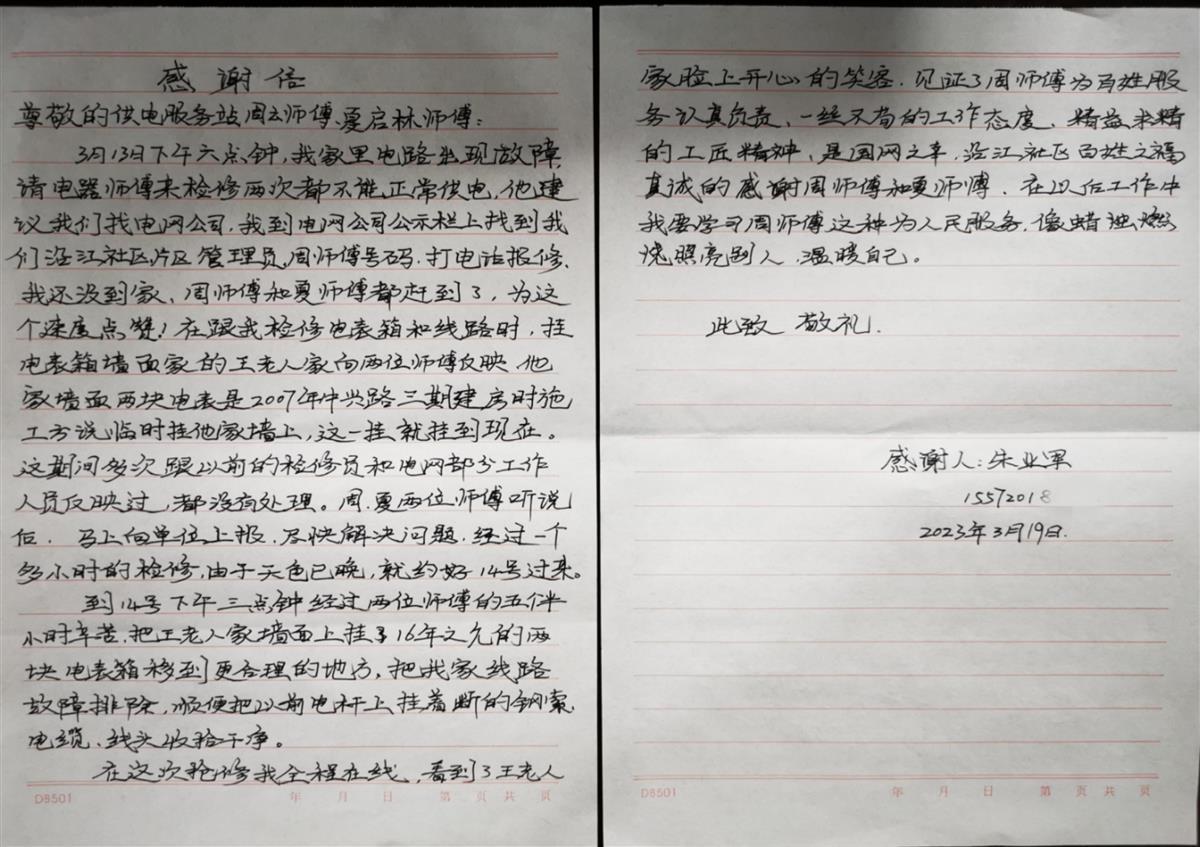 感谢信
尊敬的供电服务站周云师傅、夏启林师傅：
3月13日下午六点钟，我家里电路出现故障
请电器师傅来检修两次都不能正常供电，他建
议我们找电网公司，我到电网公司公示栏上找到我
们沿江社区片区管理员周师傅号码，打电话报修、
我还没到家、周师傅和夏师傅都赶到了，为这
个速度点赞！在跟我检修电表箱和线路时，挂
电表箱墙面家的王老人家向两位师傅反映，他
家墙面两块电表是2007年中兴路三期建房时施
工方说临时挂他家墙上，这一挂就挂到现在。
这期间多次跟以前的检修员和电网部分工作
人员反映过，都没有处理。周、夏两位师傅听说
后，马上向单位上报，尽快解决问题，经过一个
多小时的检修，由于天色已晚，就约好14号过来。
到14号下午三点钟经过两位师傅的五个半
小时辛苦，把王老人家墙面上挂了16年之久的两
块电表箱移到更合理的地方，把我家线路
故障排除，顺便把以前电杆上挂着断的钢索、
电缆、线头收拾干净。
在这次抢修我全程在线，看到了王老人
家脸上开心的笑容，见证了周师傅为百姓服
务认真负责、一丝不苟的工作态度、精益求精
的工匠精神，是国网之幸，沿江社区百姓之福
真诚的感谢周师傅和夏师傅、在以后工作中
我要学习周师傅这种为人民服务，像蜡烛燃
烧照亮别人，温暖自己。
此致 敬礼.
感谢人：朱业军
15572018
2023年3月19日.
DB501 年 月 日 第 页 共 页
DB501 年 月 日 第 页 共 页